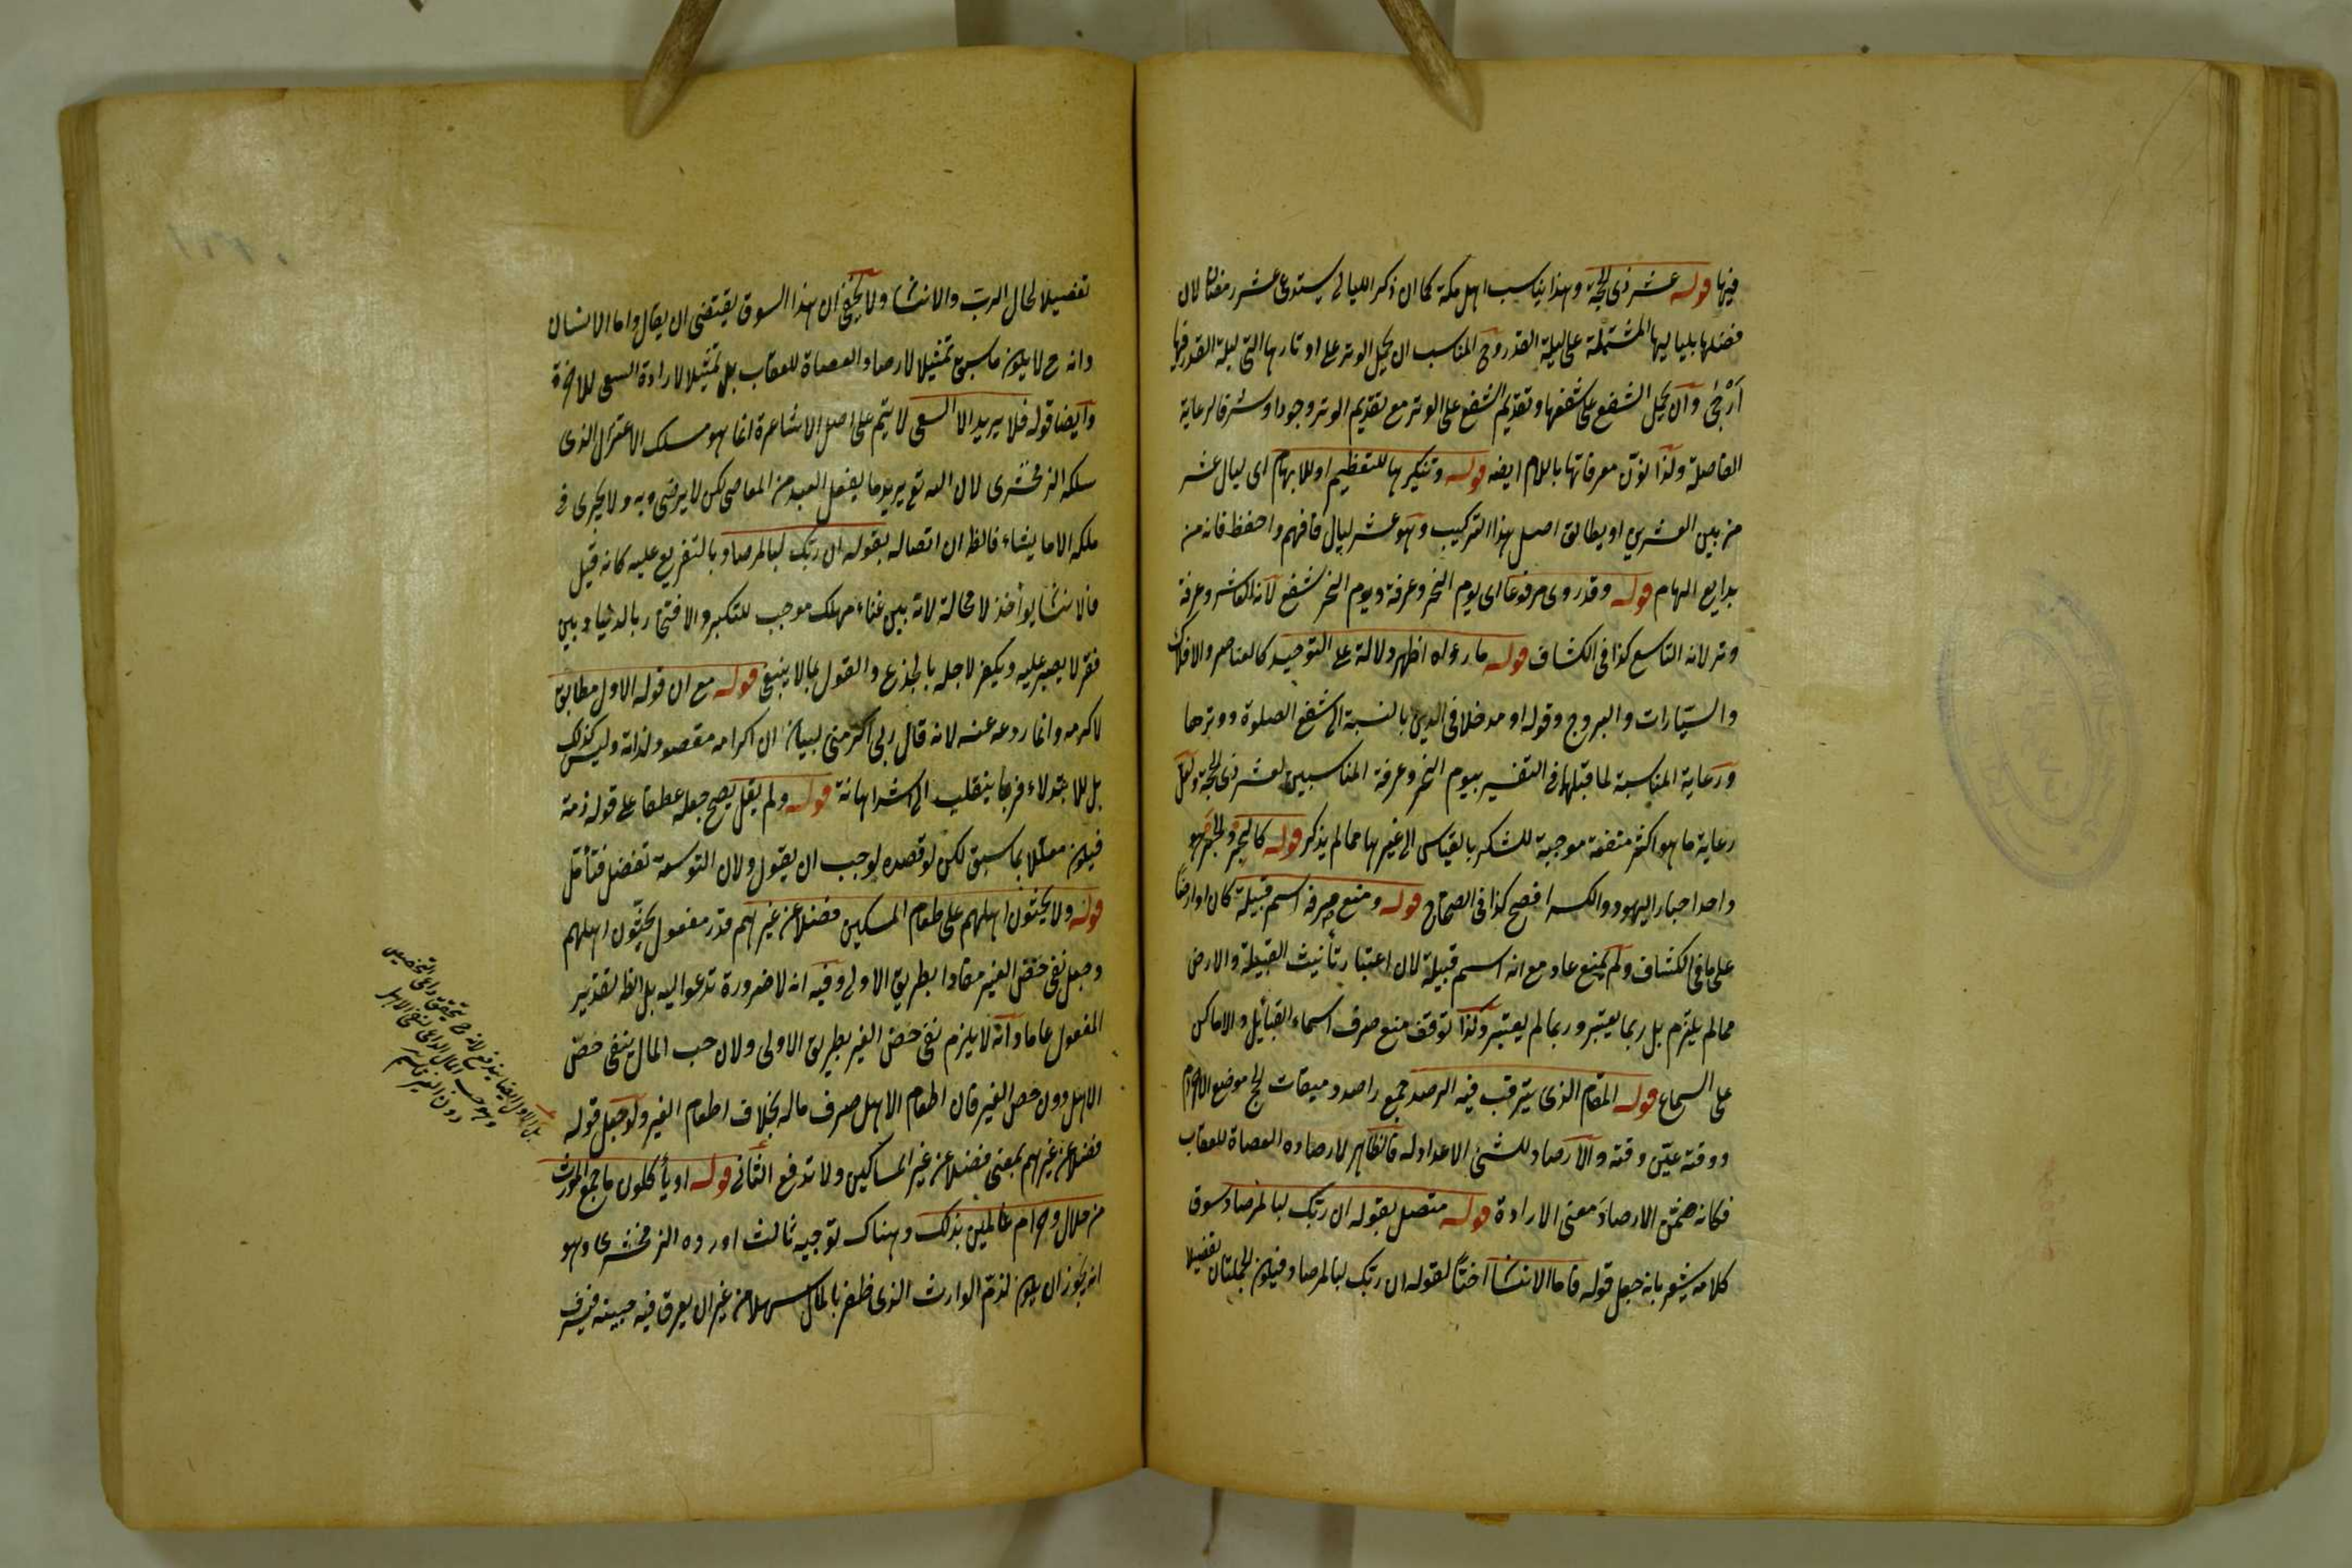 فيها قوله عشر ذى الحجة وهذا يناسب اهل مكة كما ان ذكر الليالى يستدعى عشر رمضان لان
فضلها بلياليها المشتملة على ليلة القدر وح المناسب ان يحمل الوتر على اوتارها التى ليلة القدر فيها
أرجى وان يحمل الشفع على شفعها وتقديم الشفع على الوتر مع تقديم الوتر وجودا وشرفا لرعاية
الفاصلة ولذا نون معرفاتها باللام ايضه قوله وتنكيرها للتعظيم او للابهام اى ليال عشر
من بين العشرين او يطابق اصل هذا التركيب وهو عشر ليال فافهم واحفظ فانه من
بدايع الهام قوله وقد روى مرفوعا اى يوم النحر وعرفة ويوم النحر شفع لانه العاشر وعرفة
وتر لانه التاسع كذا فى الكشاف قوله ما رءاه اظهر دلالة على التوحيد كالعناصر والافلاك
والسيارات والبروج وقوله او مدخلا فى الدين بالنسبة الى شفع الصلوة ووترها
ورعاية المناسبة لما قبلها فى التفسير بيوم النحر وعرفة المناسبين لعشر ذى الحجة ولعل
رعاية ما هو اكثر منفعة موجبة للشكر بالقياس الى غيرها مما لم يذكر قوله كالحبر والحبر هو
واحد احبار اليهود والكسر افصح كذا فى الصحاح قوله ومنع صرفه اسم قبيلة كان او ارضا
على ما فى الكشاف ولم يمنع عاد مع انه اسم قبيلة لان اعتبار تأنيث القبيلة والارض
مما لم يلتزم بل ربما يعتبر وربما لم يعتبر ولذا توقف منع صرف اسماء القبائل والاماكن
على السماع قوله المقام الذى يترقب فيه الرصد جمع راصد وميقات الحج موضع الاحرام
ووقته عين وقته والارصاد للشئ الاعداد له فالظاهر لارصاده العصاة للعقاب
فكانه ضمن الارصاد معنى الارادة قوله متصل بقوله ان ربك لبالمرصاد سوق
كلامه يشعر بانه جعل قوله فاما الانسان اختا لقوله ان ربك لبالمرصاد فيكون الجملتان تفصيلا
تفصيلا لحال الرب والانسان ولا يخفى ان هذا السوق يقتضى ان يقال واما الانسان
وانه ح لا يكون ما سبق تمثيلا لارصاد العصاة للعقاب بل تمثيلا لارادة السعى للاخرة
وايضا قوله فلا يريد الا السعى لا يتم على اصل الاشاعرة انما هو مسلك الاعتزال الذى
سلكه الزمخشرى لان الله تع يريد ما يفعل العبد من المعاصى لكن لا يرضى به ولا يجرى فى
ملكه الا ما يشاء فالظ ان اتصاله بقوله ان ربك لبالمرصاد بالتفريع عليه كانه قيل
فالانسان يوأخذ لا محالة لانه بين غناء مهلك موجب للتكبر والافتخار بالدنيا وبين
فقر لا يصبر عليه ويكفر لاجله بالجزع والقول بما لا ينبغى قوله مع ان قوله الاول مطابق
لاكرمه وانما ردعه عنه لانه قال ربى اكرمنى لبيان ان اكرامه مقصود لذاته وليس كذلك
بل للابتلاء فربما ينقلب الى اشد اهانة قوله ولم يقل يصح جعله عطفا على قوله ذمه
فيكون معللا بما سبق لكن لو قصده لوجب ان يقول ولان التوسعة تفضل فتأمل
قوله ولا يحثون اهلهم على طعام المسكين فضلا عن غيرهم قدر مفعول يحثون اهلهم
وجعل نفى حض الغير مفادا بطريق الاولى وفيه انه لا ضرورة تدعو اليه بل الظ تقدير
المفعول عاما وانه لا يلزم نفى حض الغير بطريق الاولى ولان حب المال ينفى حض
الاهل دون حض الغير فان اطعام الاهل صرف ماله بخلاف اطعام الغير ولو جعل قوله
فضلا عن غيرهم بمعنى فضلا عن غير المساكين ولا تدفع الثانى قوله او يأكلون ما جمع المورث
من حلال وحرام عالمين بذلك وهناك توجيه ثالث اورده الزمخشرى وهو
انه يجوز ان يكون لذم الوارث الذى ظفر بالمال سهلا من غير ان يعرق فيه جبينه فيسرف
بل الاول ايضا يندفع لانه ح يتحقق داعى التخصيص
وهو حب المال الداعى لنفى الاهل
دون الغير